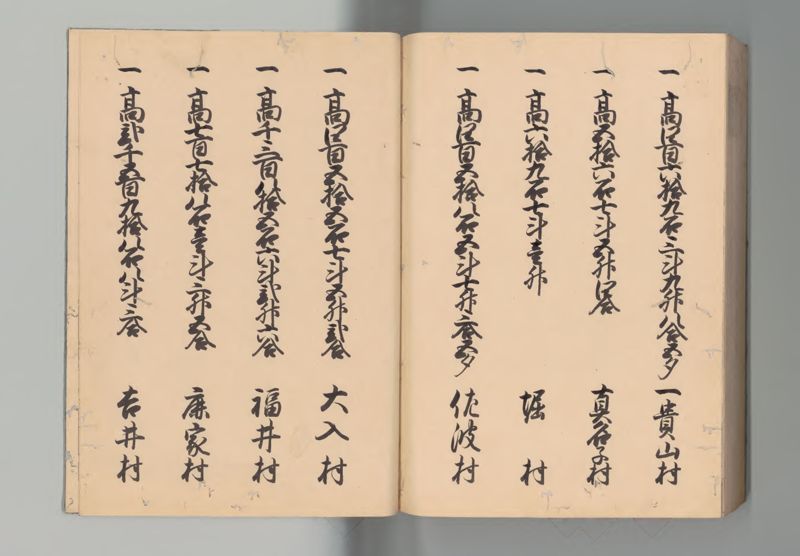 一 高四百六拾九石三斗九升八合五夕 一貴山村
一 高五拾六石七斗五升四合 真名子村
一 高六拾九石七斗壱升 堀村
一 高四百五拾八石五斗七升三合五夕 佐波村
一 高四百五拾五石七斗五升弐合 大入村
一 高千三百八拾五石六斗弐升六合 福井村
一 高七百七拾八石壱斗三升五合 鹿家村
一 高弐千五百九拾八石八斗三合 吉井村